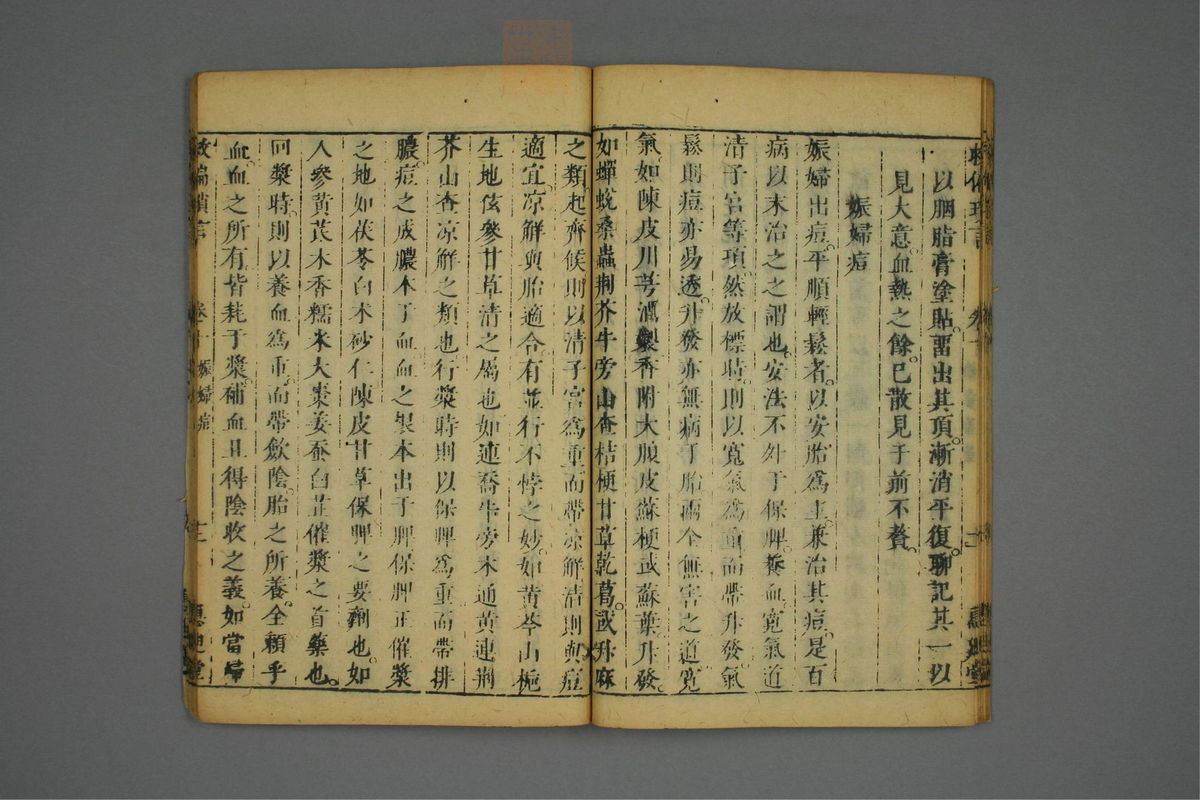 以胭脂膏塗貼留出其頂漸消平復聊記其一以
見大意血熱之餘已散見于前不贅
娠婦痘
娠婦出痘平順輕鬆者以安胎為主兼治其痘是百
病以末治之之謂也安法不外于保脾養血寬氣道
清子宮等項然放標時則以寬氣為重而帶升發氣
鬆則痘亦易透升發亦無病于胎兩全無害之道寬
氣如陳皮川芎酒製香附大腹皮蘇梗或蘇葉升發
如蟬蛻桑蟲荆芥牛旁山查桔梗甘草乾葛或升麻
之類起齊候則以清子宮為重而帶凉解清則與痘
適宜凉解與胎適合有並行不悖之妙如黃芩山梔
生地玄參甘草清之屬也如連喬牛旁木通黃連荆
芥山查凉解之類也行漿時則以保脾為重而帶排
膿痘之成膿本于血血之製本出于脾保脾正催漿
之地如茯苓白朮砂仁陳皮甘草保脾之要劑也如
人參黃芪木香糯米大棗姜蚕白芷催漿之首藥也
回漿時則以養血為重而帶歛陰胎之所養全賴乎
血血之所有皆耗于漿補血且得陰收之義如當歸
救偏瑣言
卷十 娠婦痘
十二
惠迪堂